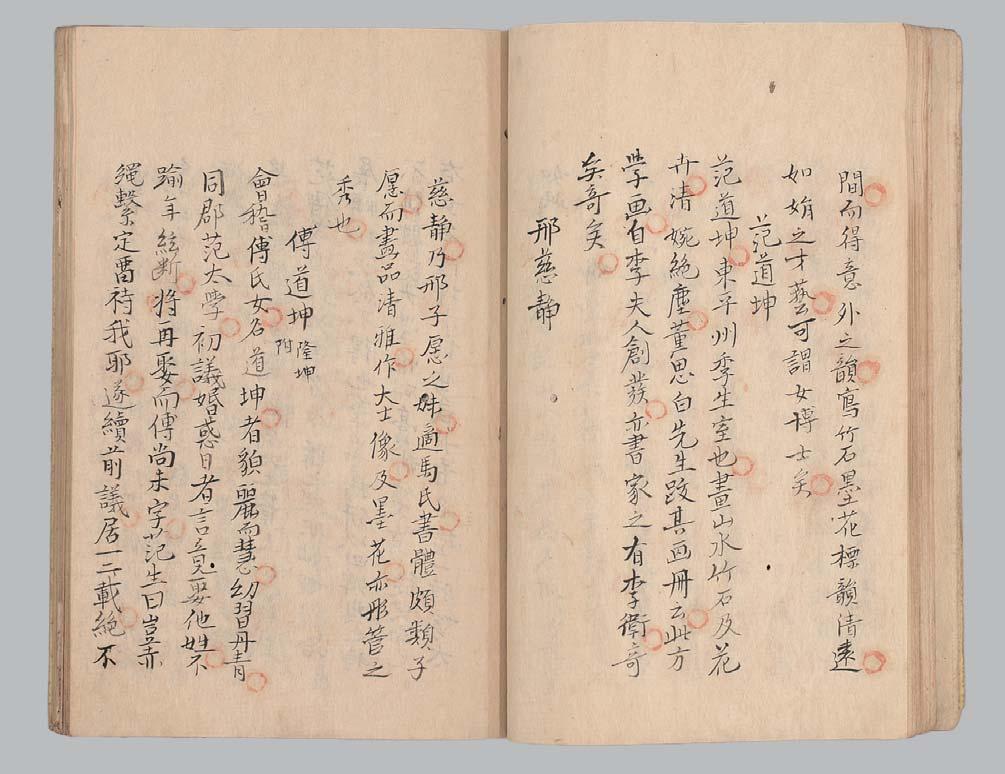 間而得意外之韻寫竹石墨花標韻清遠
如娟之才藝可謂女博士矣
范道坤
范道坤東平州季生室也畫山水竹石及花
卉清婉絶塵董思白先生跋其画冊云此方
學画自李夫人創發亦書家之有李衛奇
矣奇矣
邢慈靜
慈靜乃邢子愿之妹適馬氏書體頗類子
愿而畫品清雅作大士像及墨花亦彤管之
秀也
傅道坤 附隆坤
會稽傅氏女名道坤者貌麗而慧幼習丹青
同郡范太學初議婚惑日者言竟娶他姓不
踰年絃斷將再娶而傅尚未字范生曰豈赤
繩繫定畱待我耶遂續前議居一二載絶不